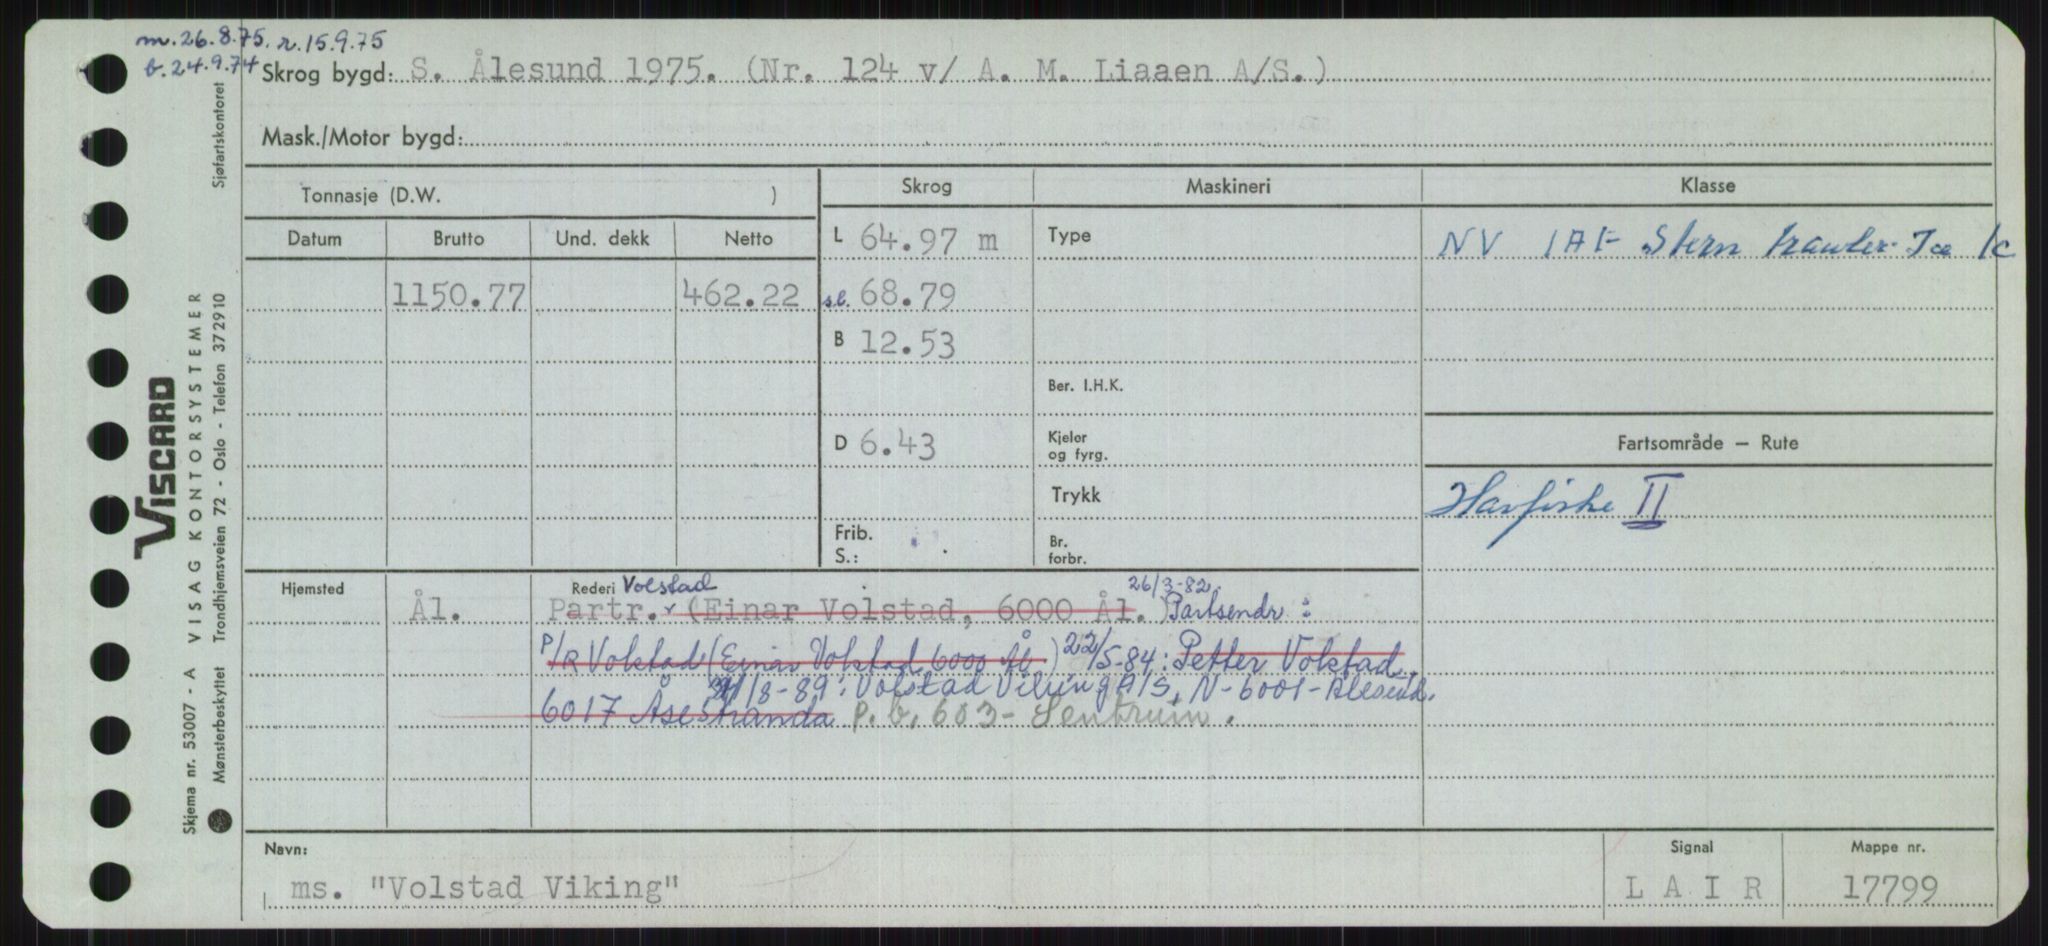 m. 26.8.75. r. 15.9.75
b. 24.9.74
Skrog bygd: S. Ålesund 1975. (Nr. 124 v/ A. M. Liaaen A/S.)
Mask./Motor bygd:
Tonnasje (D.W. )
Skrog
Maskineri
Klasse
Datum Brutto Und. dekk Netto
L 64.97 m
Type
NV 1A1- Stern trawler- Ice 1c
1150.77 462.22
s.l. 68.79
B 12.53
Ber. I.H.K.
D 6.43
Kjeler
og fyrg.
Fartsområde — Rute
Trykk
Havfiske II
Frib.
S.:
Br.
forbr.
Hjemsted
Rederi Volstad
26/3-82
Ål. Partr. (Einar Volstad, 6000 Ål.) Partsendr:
P/R Volstad (Einar Volstad 6000 Ål) 22/5-84: Petter Volstad
/8-89: Volstad Viking A/S, N-6001-Ålesund.
6017 Åsestranda P.b. 603- Sentrum.
Navn:
ms. "Volstad Viking"
Signal
L A I R
Mappe nr.
17799
VISCARD
Skjema nr. 53007 - A VISAG KONTORSYSTEMER
Mønsterbeskyttet Trondhjemsveien 72 - Oslo - Telefon 372910
Sjøfartskontoret